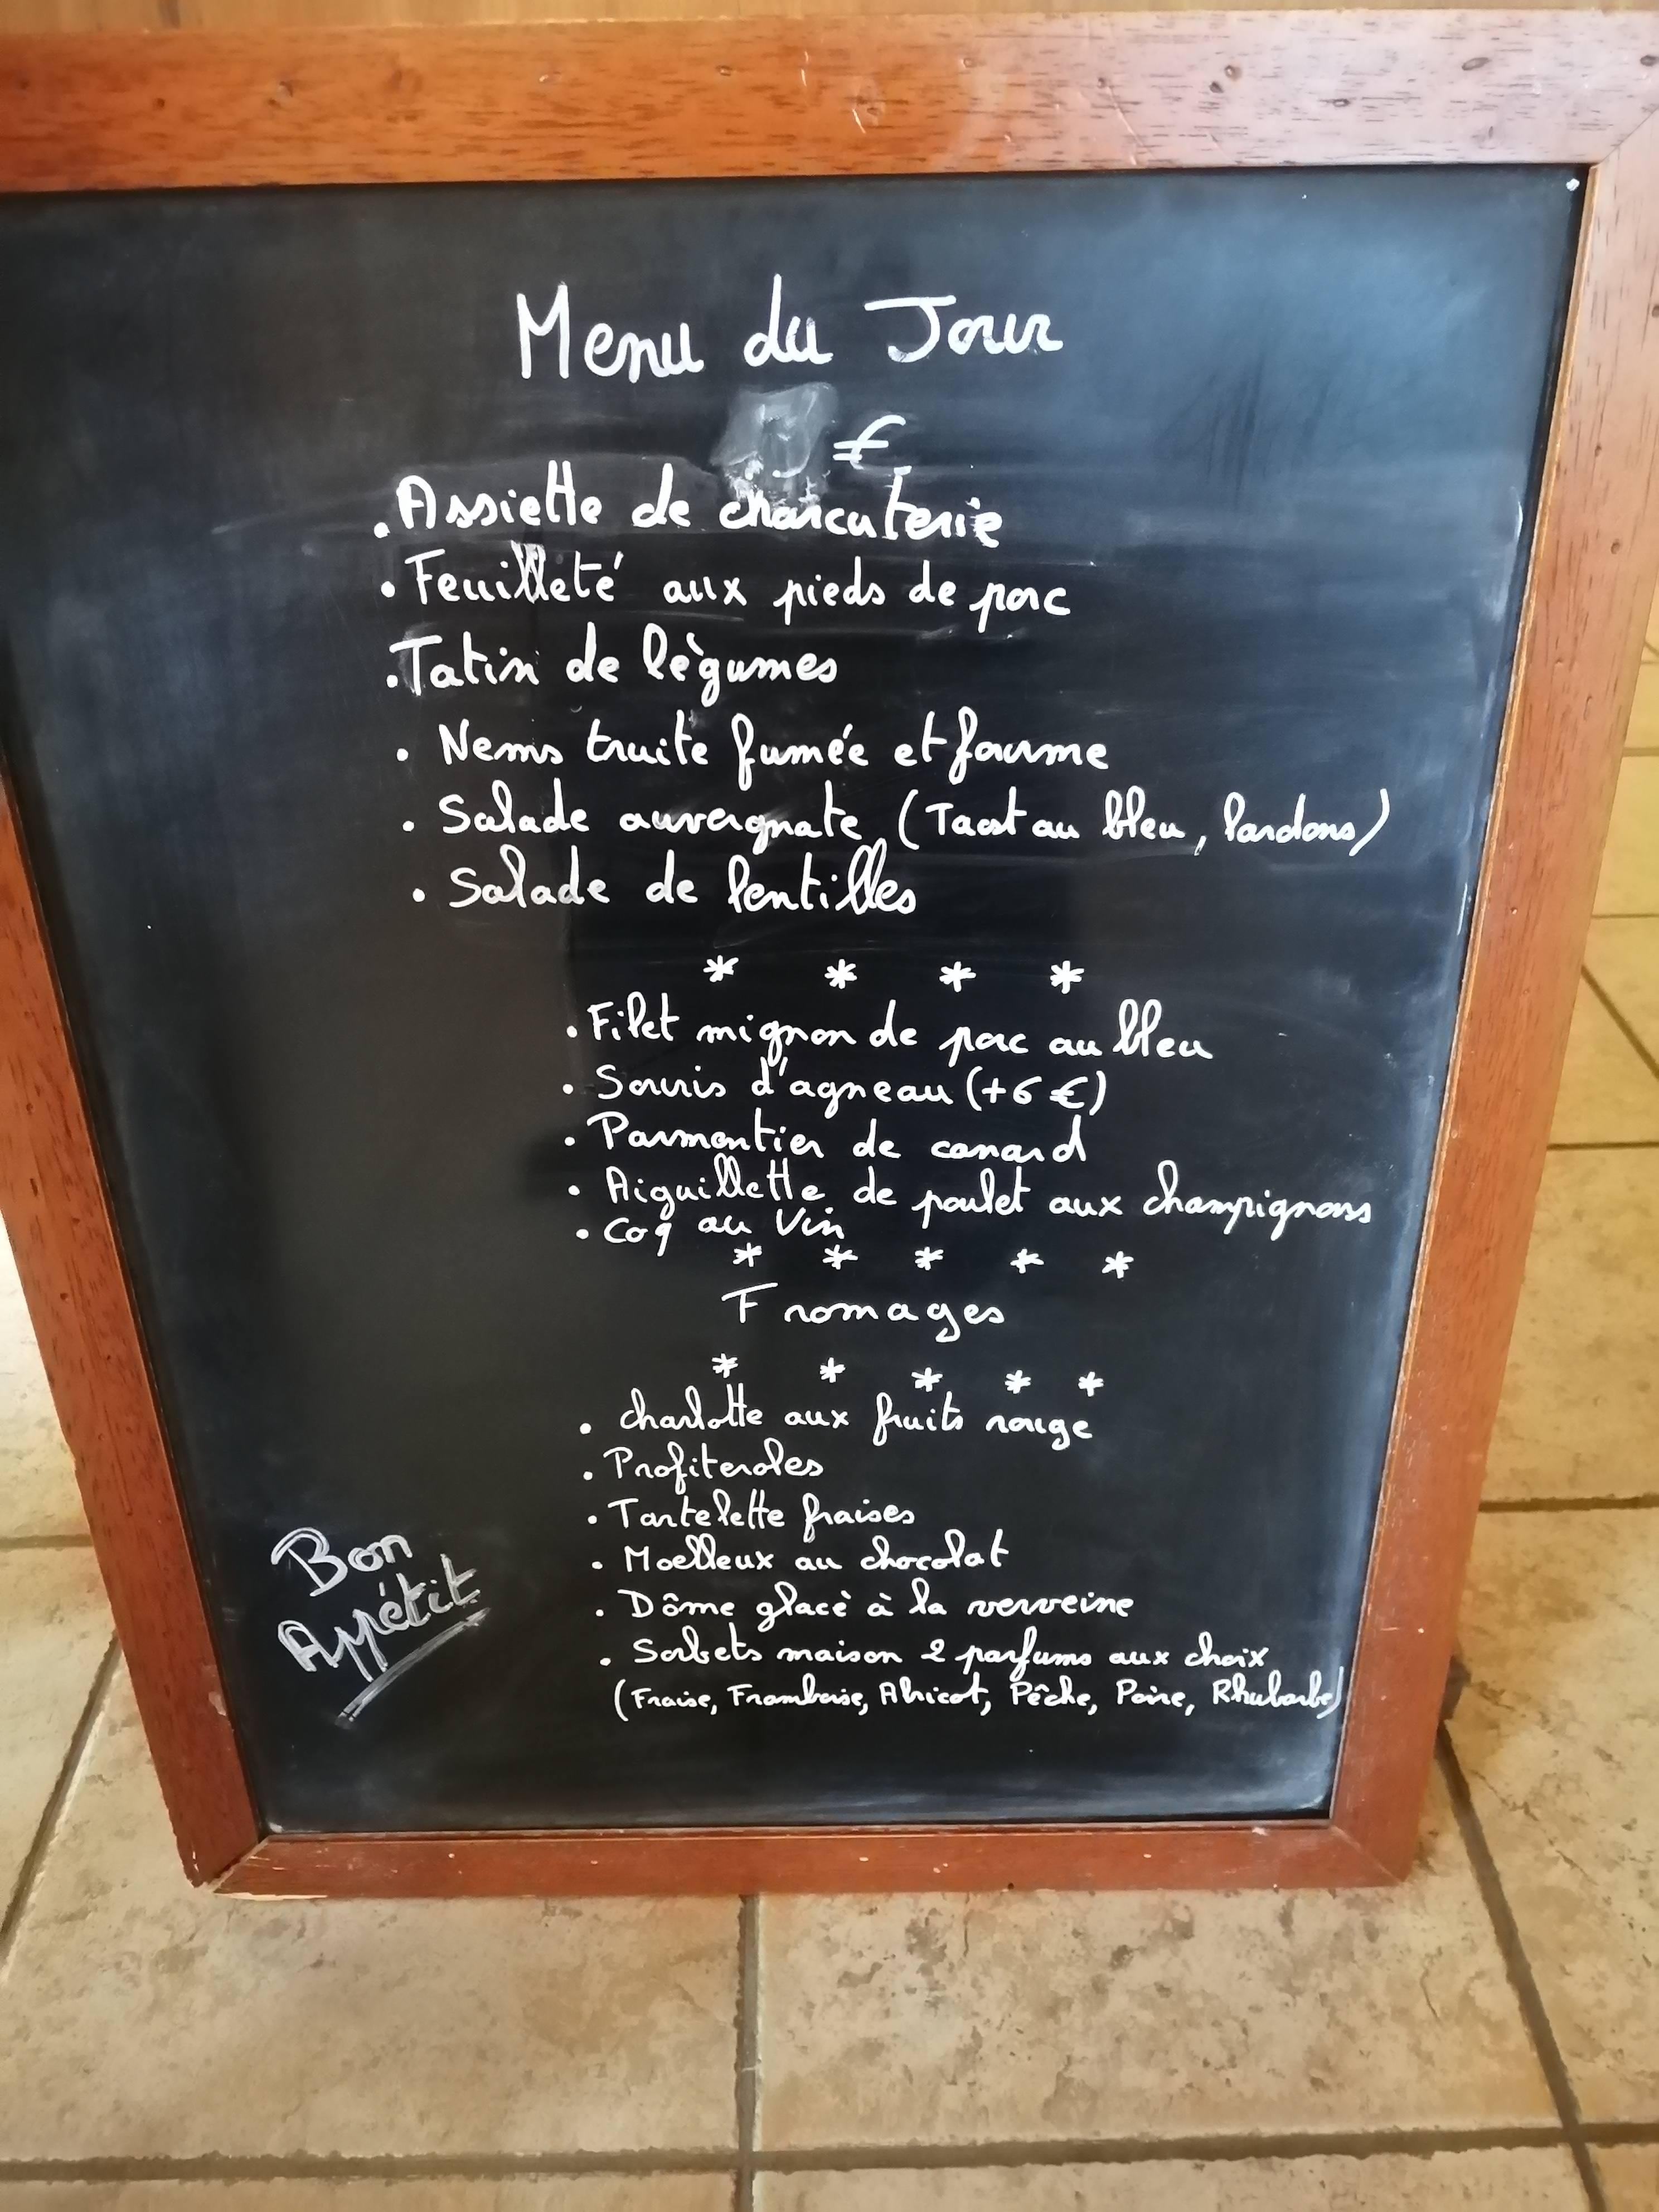 Menu du Jour
€
. Assiette de charcuterie
. Feuilleté aux pieds de porc
. Tatin de lègumes
. Nems truite fumée et fourme
. Salade auvergnate (Taost au bleu, lardons)
. Salade de lentilles
* * * *
. Filet mignon de porc au bleu
. Souris d'agneau (+6 €)
. Parmentier de canard
. Aiguillette de poulet aux champignons
. Coq au Vin
* * * * *
Fromages
* * * * *
. charlotte aux fruits rouge
. Profiteroles
. Tartelette fraises
. Moelleux au chocolat
. Dôme glacè à la verveine
. Sorbets maison 2 parfums aux choix
(Fraise, Framboise, Abricot, Pêche, Poire, Rhubarbe)
Bon
Appétit